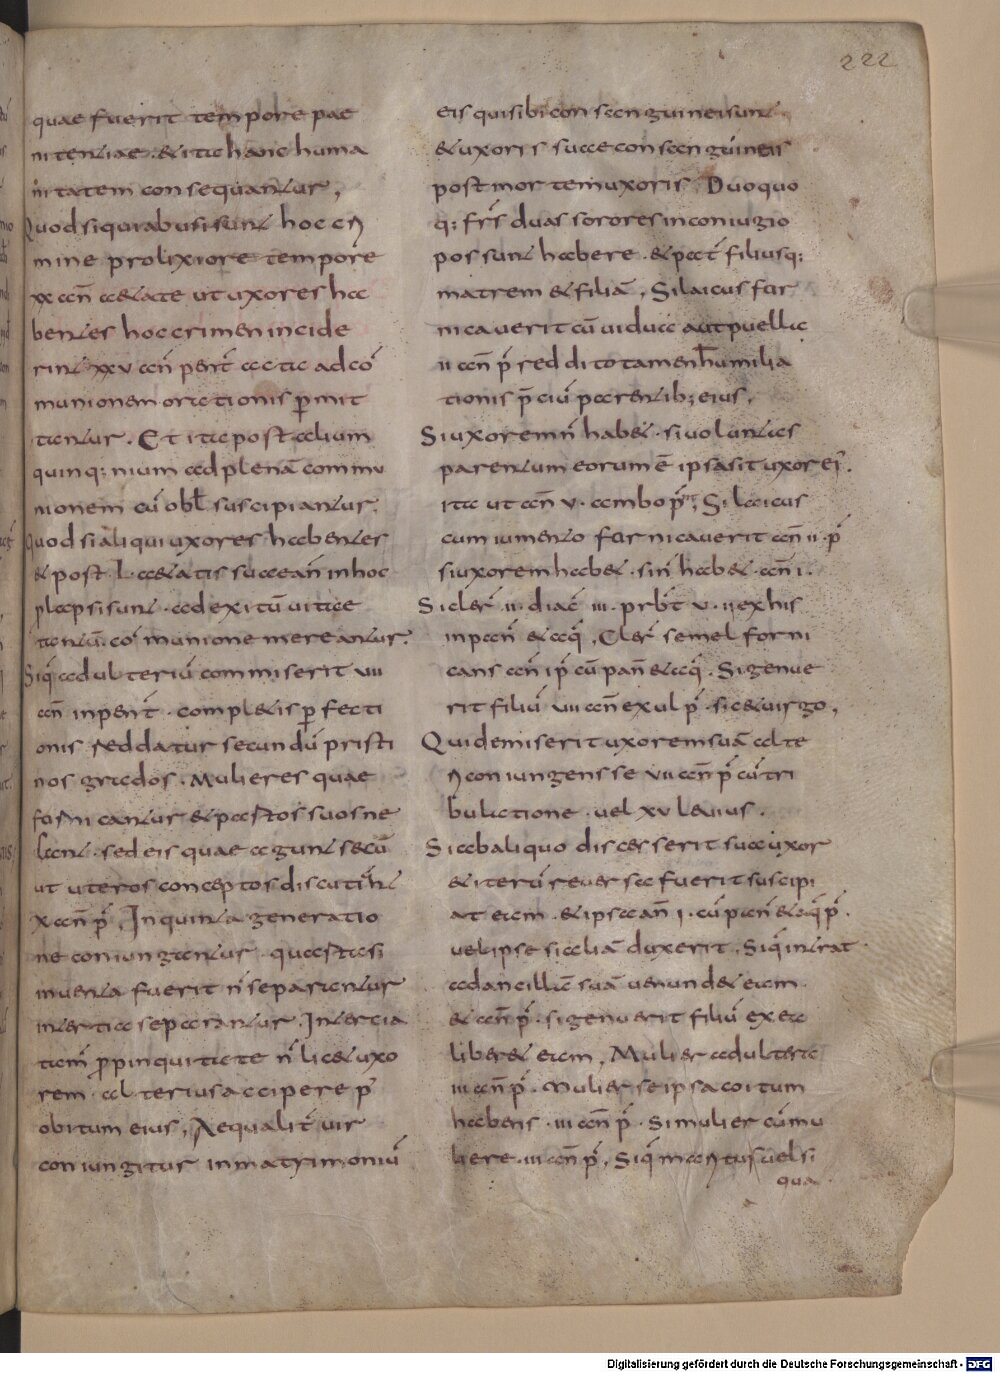 222
quae fuerit tempore pae
nitentiae · & ita hanc huma
nitatem consequantur,
Quod si qui abusi sunt hoc cri
mine prolixiore tempore
xx ann̄ aetate ut uxores ha
bentes hoc crimen incide
rint xxv ann̄ penit̄ acta ad cō
munionem orationis p̄mit
tantur. Et ita post alium
quinq; nium ad plenā commu
nionem cū obl̄ suscipiantur.
Quod si aliqui uxores habentes
& post · L · aetatis suae ann̄ in hoc
plapsi sunt · ad exitū uitae
tantū cōmunione mereantur.
Siq̄ adulteriū commiserit vii
ann̄ in penit̄ · completis p̄fecti
onis reddatur secundū pristi
nos grados · Mulieres quae
fornicantur & partos suos ne
cant · sed eis quae agunt secū
ut uteros conceptos discutiant
x ann̄ p̄, In quinta generatio
ne coniungantur · quarta si
inuenta fuerit n̄ separantur
in tertia separantur. In tertia
tam̄ p̄pinquitate n̄ licet uxo
rem alterius accipere p̄
obitum eius, Aequalit̄ uir
coniungitur in matrimoniū
eis qui sibi consanguinei sunt
& uxoris suae consanguineis
post mortem uxoris, Duo quo
q; fr̄s duas sorores in coniugio
possunt habere · & pat̄ filiusq;
matrem & filiā, Si laicus for
nicauerit cū uidua aut puella
ii ann̄ p̄ reddito tamen humilia
tionis p̄ciū parentib; eius,
Si uxorem n̄ habet · si uoluntas
parentum eorum ē ipsa sit uxor ei'.
ita ut ann̄ v · ambo p̄; Si laicus
cum iumento fornicauerit ann̄ ii · p̄
si uxorem habet · si n̄ habet · ann̄ i ·
Si cler̄ ii · diac̄ iii · prb̄t v · ii ex his
in pan̄ & aq̄, Cler̄ semel forni
cans ann̄ i p̄ cū pan̄ & aq̄ · Si genue
rit filiū vii ann̄ exul p̄ · sic & uirgo,
Qui demiserit uxorem suā alte
ri coniungens se vii ann̄ p̄ cū tri
bulatione · uel xv leuius ·
Si ab aliquo discesserit sua uxor
& iterū reuersa fuerit suscipi
at eam · & ipsa an̄ i · cū pan̄ & aq̄ p̄ ·
uel ipse si aliā duxerit, Siq̄ intrat
ad ancillā suā uenundet eam
& ann̄ p̄ · si genuerit filiū ex ea
liberet eam, Mulier adultera
iii ann̄ p̄ · Mulier se ipsa coitum
habens · iii ann̄ p̄ · Si mulier cū mu
liere · iii ann̄ p̄, Siq̄ maritus uel si
qua ·
Digitalisierung gefördert durch die Deutsche Forschungsgemeinschaft - DFG